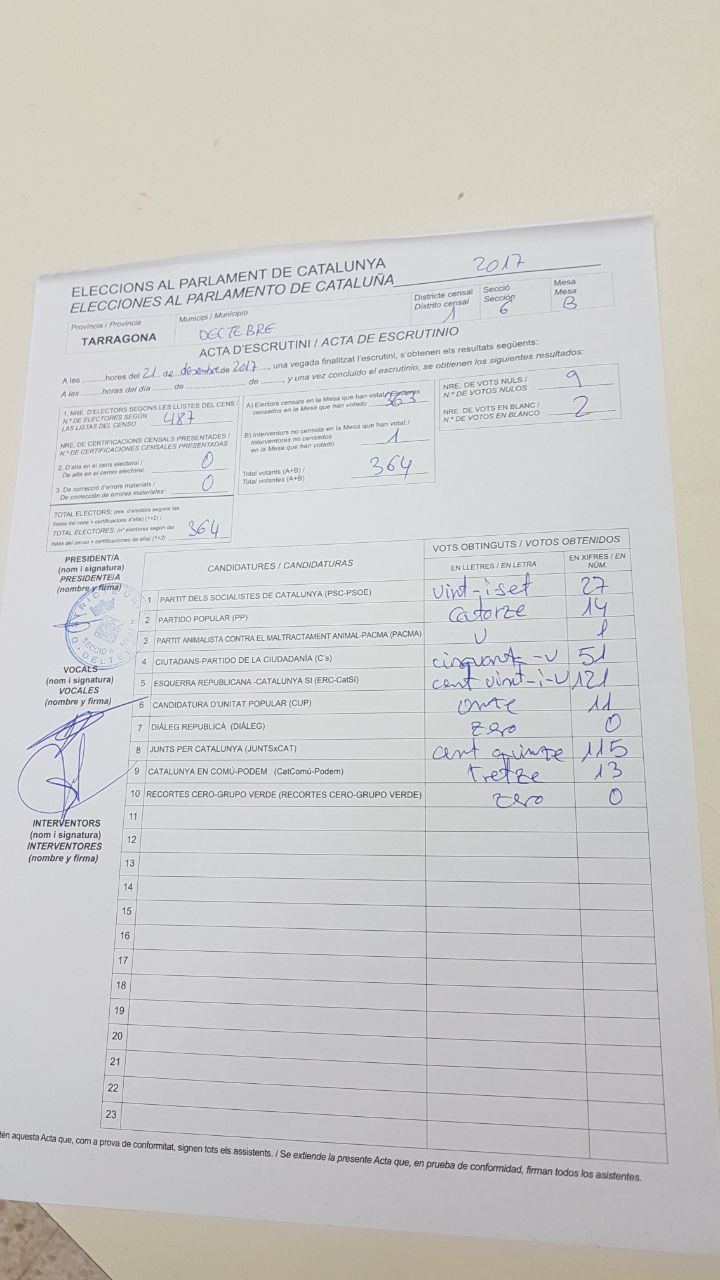 ELECCIONS AL PARLAMENT DE CATALUNYA
ELECCIONES AL PARLAMENTO DE CATALUÑA 2017
Província / Provincia
TARRAGONA
Municipi / Municipio
DELTEBRE
Districte censal
Distrito censal
1
Secció
Sección
6
Mesa
Mesa
B
ACTA D'ESCRUTINI / ACTA DE ESCRUTINIO
A les .........hores del 21 de desembre de 2017......, una vegada finalitzat l'escrutini, s'obtenen els resultats següents:
A las .........horas del día ........ de ........................... de ........, y una vez concluido el escrutinio, se obtienen los siguientes resultados:
1. NRE. D'ELECTORS SEGONS LES LLISTES DEL CENS /
N.º DE ELECTORES SEGÚN
LAS LISTAS DEL CENSO
487
NRE. DE CERTIFICACIONS CENSALS PRESENTADES /
N.º DE CERTIFICACIONES CENSALES PRESENTADAS
2. D'alta en el cens electoral /
De alta en el censo electoral:
0
3. De correcció d'errors materials /
De corrección de errores materiales:
0
TOTAL ELECTORS: (nre. d'electors segons les
llistes del cens + certificacions d'alta) (1+2) /
TOTAL ELECTORES: (nº electores según las
listas del censo + certificaciones de alta) (1+2)
364
A) Electors censats en la Mesa que han votat / Electores
censados en la Mesa que han votado
363
B) Interventors no censats en la Mesa que han votat /
Interventores no censados
en la Mesa que han votado
1
Total votants (A+B) /
Total votantes (A+B)
364
NRE. DE VOTS NULS /
N.º DE VOTOS NULOS
9
NRE. DE VOTS EN BLANC /
N.º DE VOTOS EN BLANCO
2
PRESIDENT/A
(nom i signatura)
PRESIDENTE/A
(nombre y firma)
VOCALS
(nom i signatura)
VOCALES
(nombre y firma)
INTERVENTORS
(nom i signatura)
INTERVENTORES
(nombre y firma)
CANDIDATURES / CANDIDATURAS
VOTS OBTINGUTS / VOTOS OBTENIDOS
EN LLETRES / EN LETRA
EN XIFRES / EN NÚM.
1 PARTIT DELS SOCIALISTES DE CATALUNYA (PSC-PSOE) vint-i-set 27
2 PARTIDO POPULAR (PP) catorze 14
3 PARTIT ANIMALISTA CONTRA EL MALTRACTAMENT ANIMAL-PACMA (PACMA) U 1
4 CIUTADANS-PARTIDO DE LA CIUDADANÍA (C's) cinquanta-U 51
5 ESQUERRA REPUBLICANA -CATALUNYA SI (ERC-CatSí) cent vint-i-U 121
6 CANDIDATURA D'UNITAT POPULAR (CUP) onze 11
7 DIÀLEG REPUBLICÀ (DIÀLEG) zero 0
8 JUNTS PER CATALUNYA (JUNTSxCAT) cent quinze 115
9 CATALUNYA EN COMÚ-PODEM (CatComú-Podem) tretze 13
10 RECORTES CERO-GRUPO VERDE (RECORTES CERO-GRUPO VERDE) zero 0
11
12
13
14
15
16
17
18
19
20
21
22
23
aquesta Acta que, com a prova de conformitat, signen tots els assistents. / Se extiende la presente Acta que, en prueba de conformidad, firman todos los asistentes.